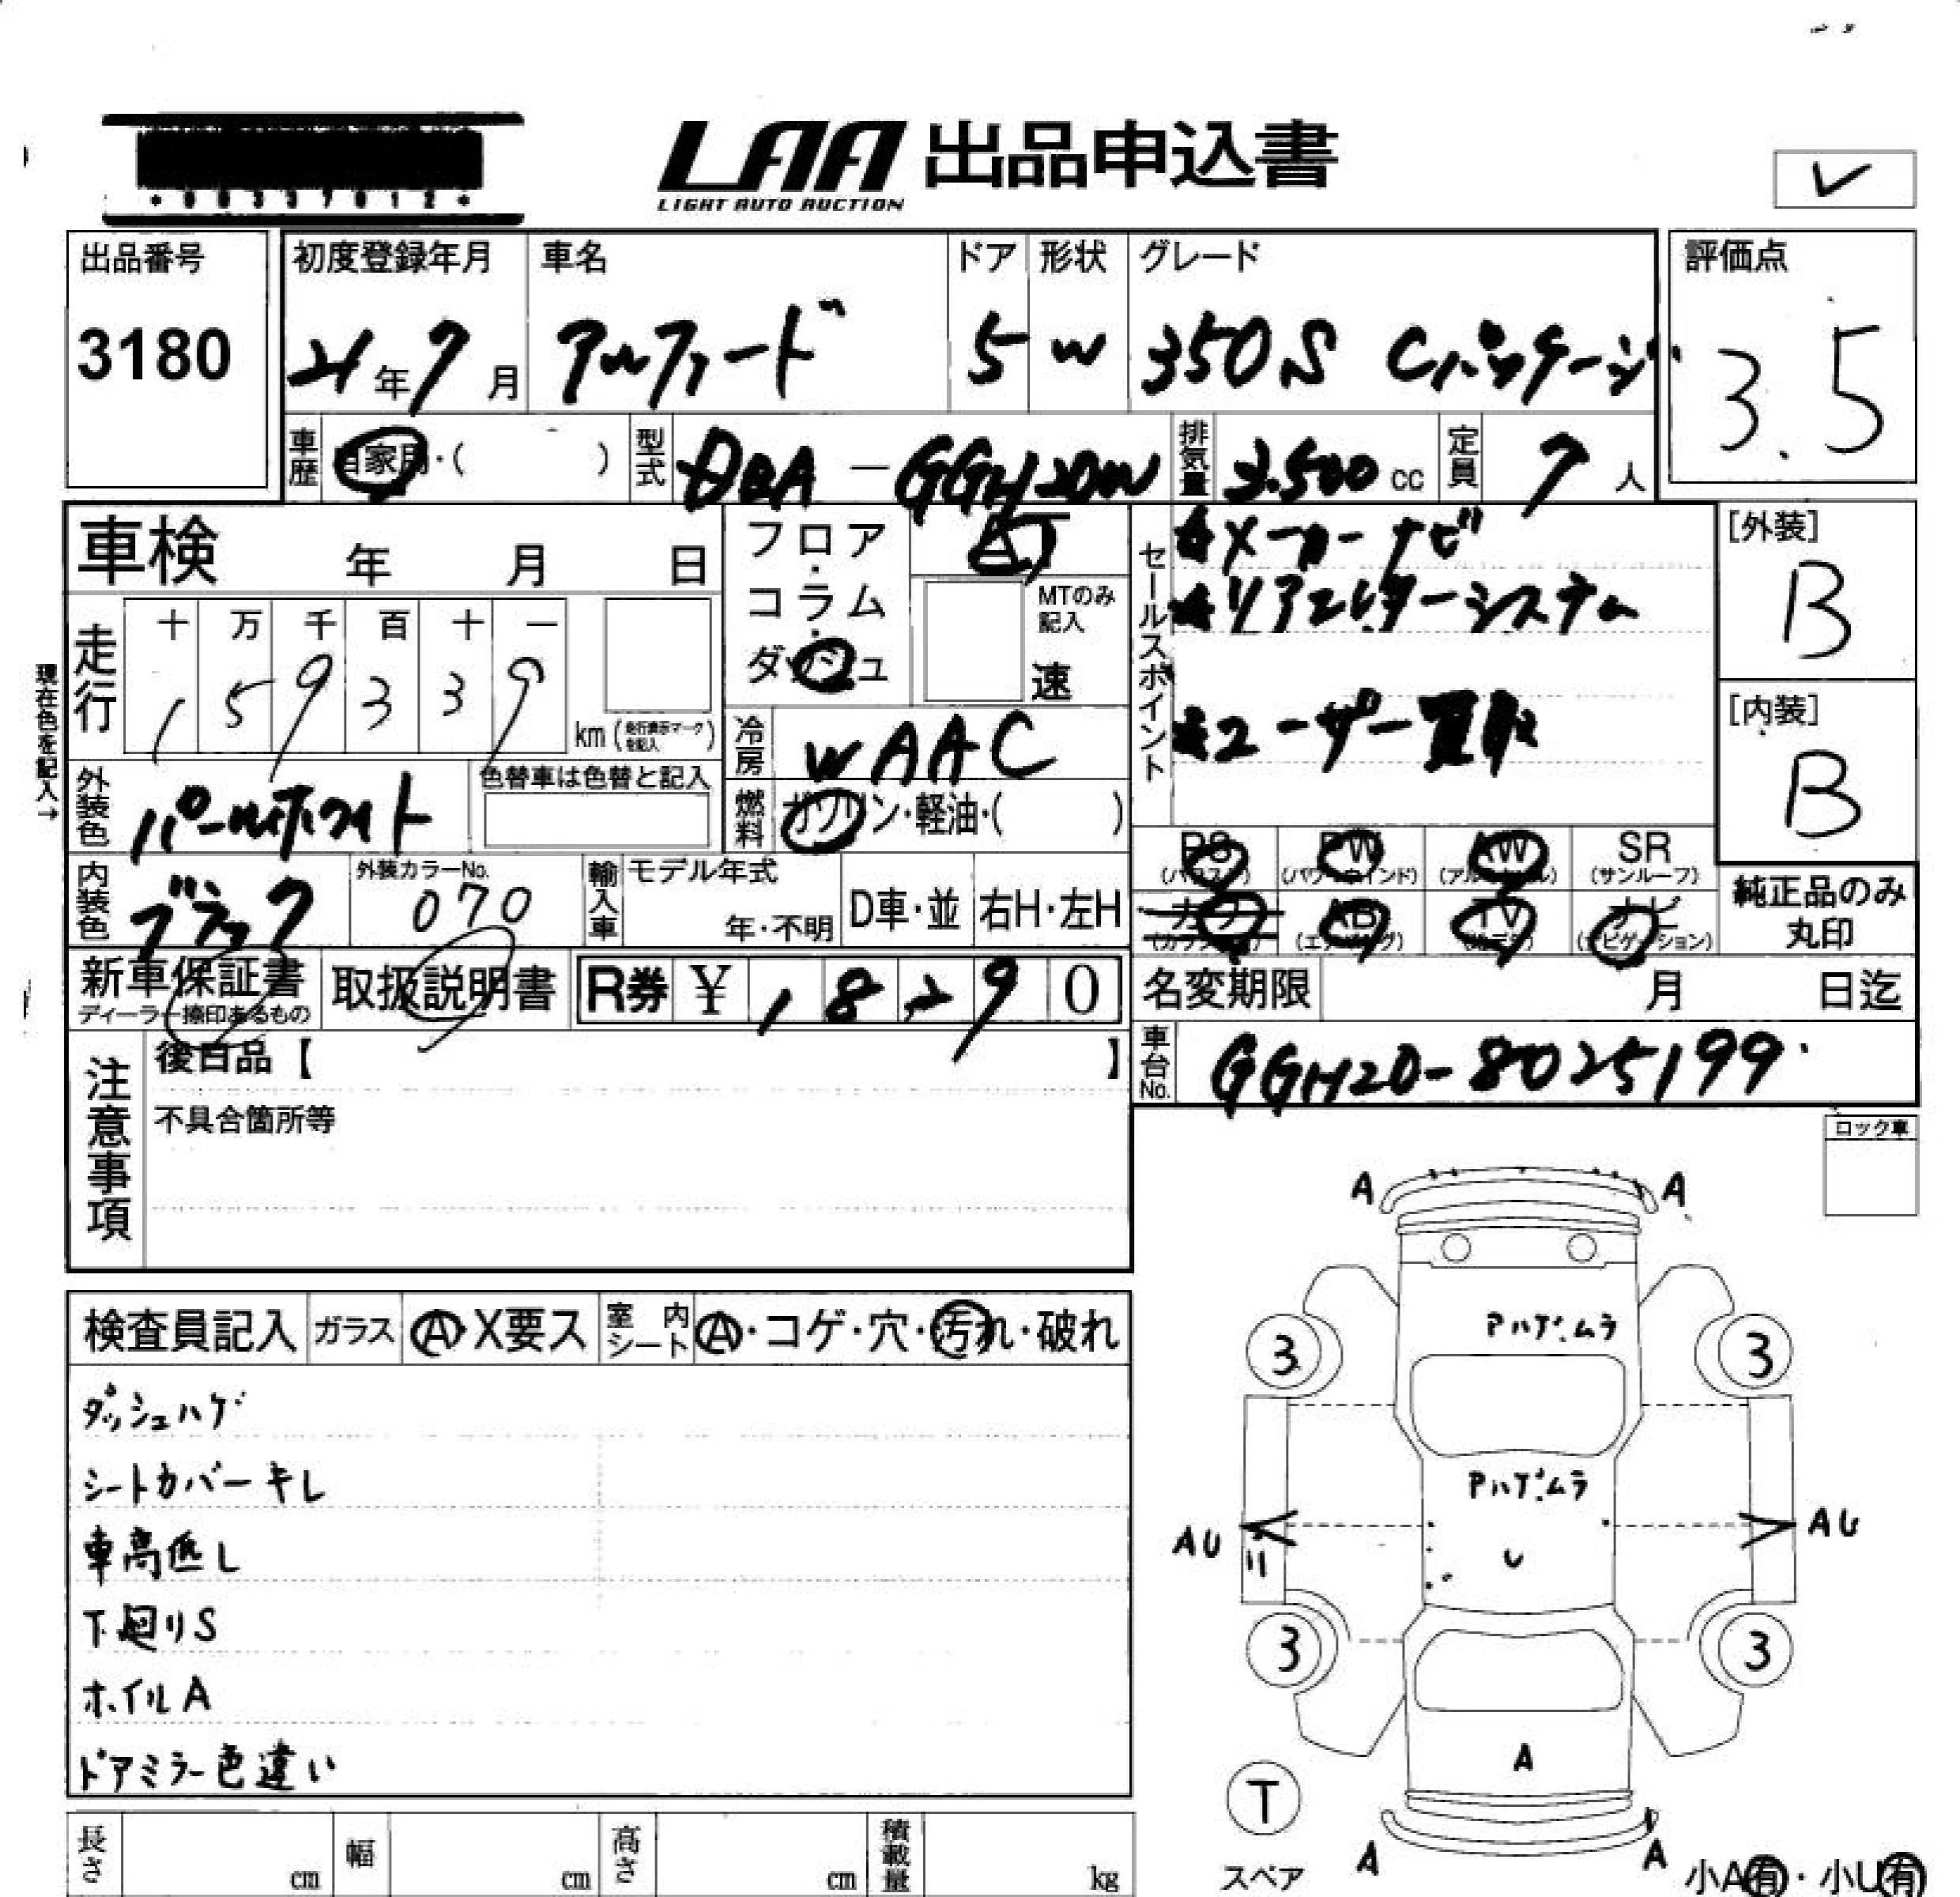 *00337012*
LAA 出品申込書
LIGHT AUTO AUCTION
✓
出品番号
3180
初度登録年月
21年7月
車名
アルファード
ドア
5
形状
W
グレード
350S Cパッケージ
評価点
3.5
車歴
自家用・( )
型式
DBA-GGH20W
排気量
3.500cc
定員
7人
車検 年 月 日
フロア・コラム・ダッシュ
AT
MTのみ記入
速
セールスポイント
☆メーカーナビ
☆リアエンターシステム
☆ユーザー買取
[外装]
B
[内装]
B
現在色を記入→
走行
十 万 千 百 十 一
1 5 9 3 3 9
km(走行表示マークを記入)
冷房
WAAC
外装色
パールホワイト
色替車は色替と記入
燃料
ガソリン・軽油・( )
PS PW AW SR
(パワステ) (パワーウインド) (アルミホイル) (サンルーフ)
カワ AB TV ナビ
(エアバッグ) (ナビゲーション)
純正品のみ丸印
内装色
ブラック
外装カラーNo.
070
輸入車
モデル年式
年・不明
D車・並
右H・左H
新車保証書
ディーラー捺印あるもの
取扱説明書
R券 ¥ 18290
名変期限 月 日迄
車台No.
GGH20-8025199
注意事項
後日品【 】
不具合箇所等
ロック車
検査員記入
ガラス
A・X要ス
室内シート
A・コゲ・穴・汚れ・破れ
ダッシュハゲ
シートカバーキレ
車高低し
下廻りS
ホイルA
ドアミラー色違い
A A
Pハゲ.ムラ
3 3
Pハゲ.ムラ
AU AU
U
3 3
A
T
スペア
A A
小A有・小U有
長さ cm
幅 cm
高さ cm
積載量 kg